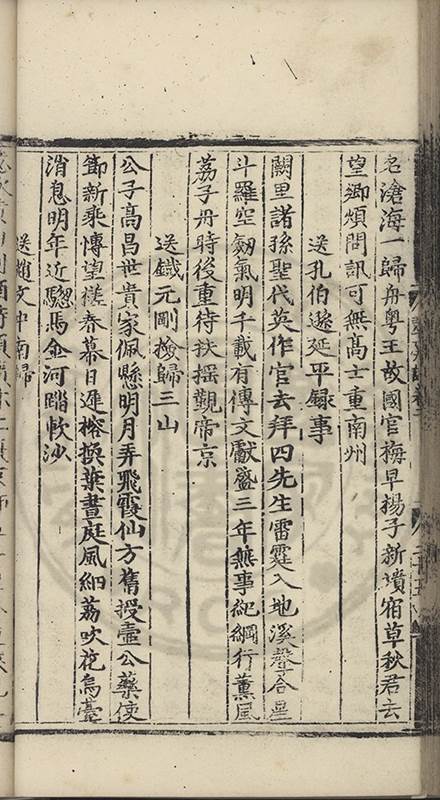 名滄海一歸舟粤王故國官梅早揚子新墳宿草秋君去
望鄉煩問訊可無髙士重南州
送孔伯遂延平録事
闕里諸孫聖代英作官去拜四先生雷霆入地溪聲合星
斗羅空劔氣明千載有傳文獻盛三年無事紀綱行薫風
荔子丹時後重待扶揺觀帝京
送鐵元剛掾歸三山
公子髙昌世貴家佩懸明月弄飛霞仙方舊授壷公藥使
節新乘愽望槎春慕日遲榕換葉晝庭風細荔吹花烏臺
消息明年近驄馬金河踏軟沙
送趙文中南歸